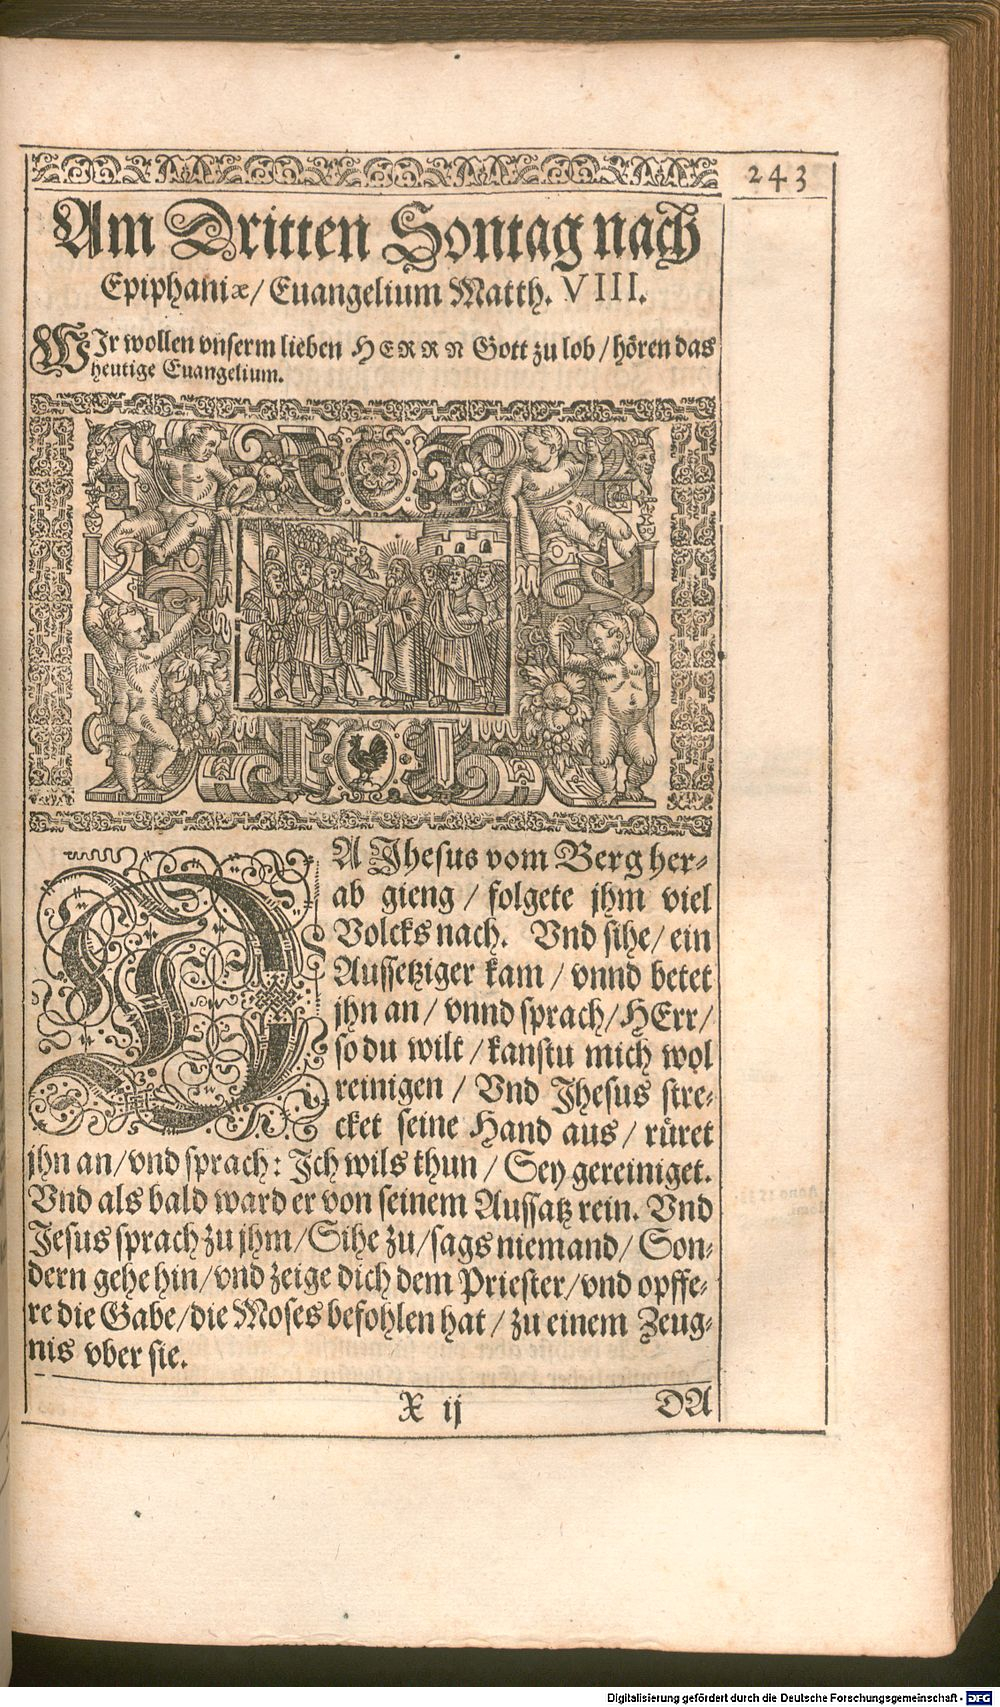 243
Am Dritten Sontag nach
Epiphaniæ/ Euangelium Matth. VIII.
WIr wollen vnserm lieben HERRN Gott zu lob/ hören das
heutige Euangelium.
DA Jhesus vom Berg her-
ab gieng / folgete jhm viel
Volcks nach. Vnd sihe/ ein
Aussetziger kam / vnnd betet
jhn an / vnnd sprach/ HErr/
so du wilt / kanstu mich wol
reinigen / Vnd Jhesus stre-
cket seine Hand aus / rüret
jhn an/ vnd sprach: Ich wils thun / Sey gereiniget.
Vnd als bald ward er von seinem Aussatz rein. Vnd
Jesus sprach zu jhm/ Sihe zu/ sags niemand/ Son-
dern gehe hin/ vnd zeige dich dem Priester/ vnd opffe-
re die Gabe/ die Moses befohlen hat / zu einem Zeug-
nis vber sie.
X ij DA
Digitalisierung gefördert durch die Deutsche Forschungsgemeinschaft - DFG